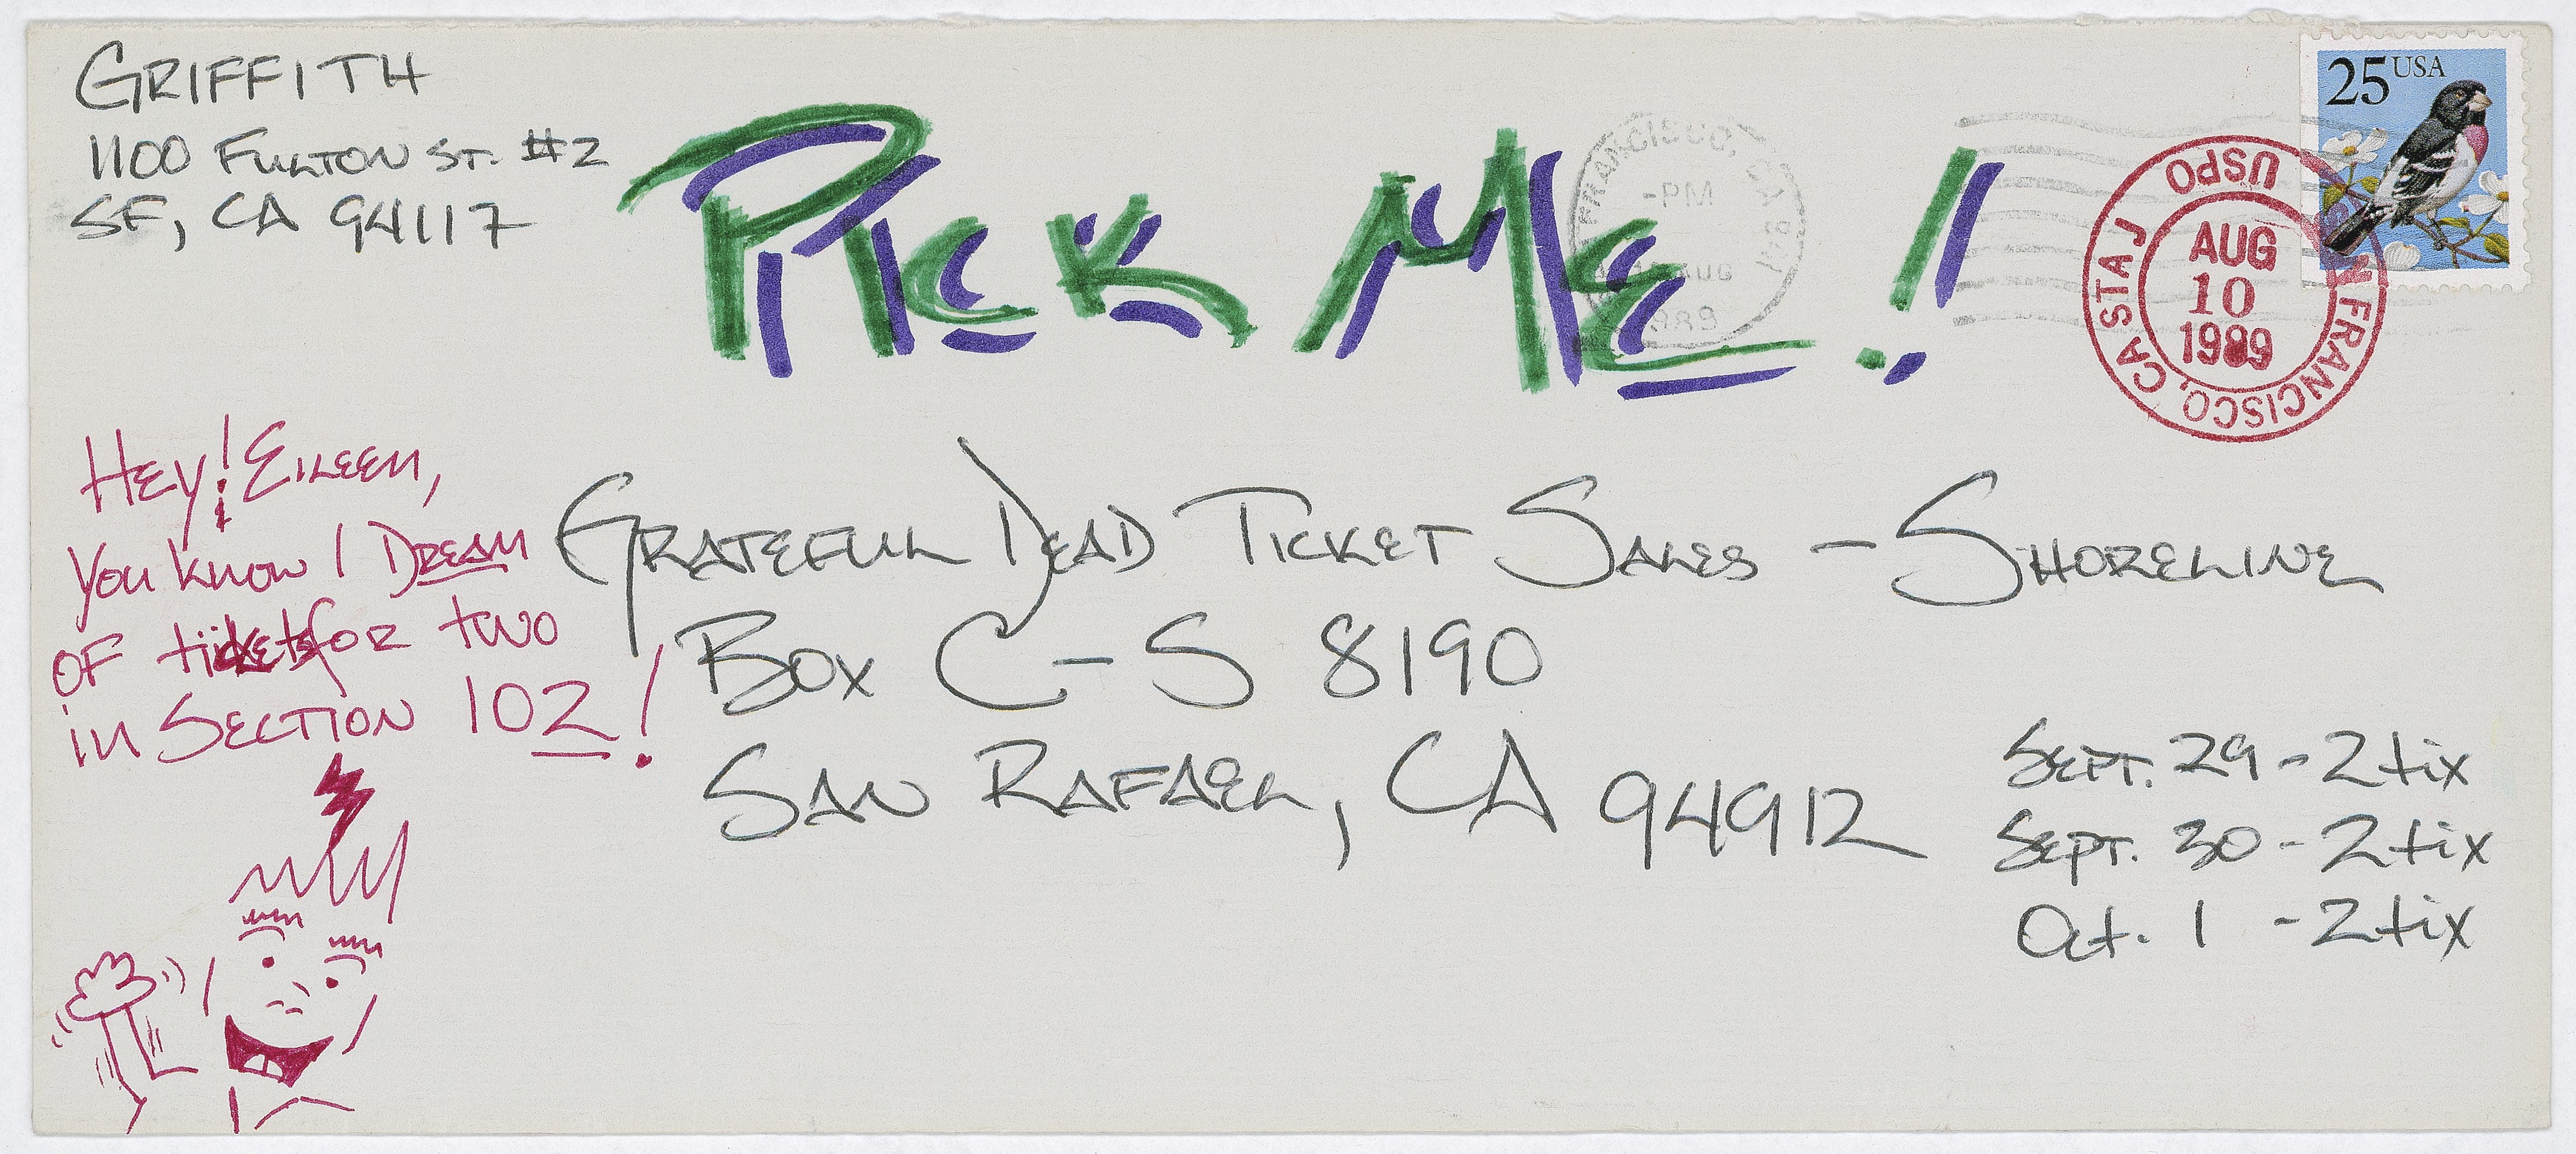 GRIFFITH
1100 FULTON ST. #2
SF, CA 94117
PICK ME!
FRANCISCO, CA
-PM
AUG
1989
25 USA
USPO
SAN FRANCISCO, CA STA J
AUG
10
1989
HEY! EILEEN,
YOU KNOW I DREAM
OF tickets FOR two
in SECTION 102!
GRATEFUL DEAD TICKET SALES - SHORELINE
BOX C-S 8190
SAN RAFAEL, CA 94912
SEPT. 29 - 2 tix
SEPT. 30 - 2 tix
Oct. 1 - 2 tix